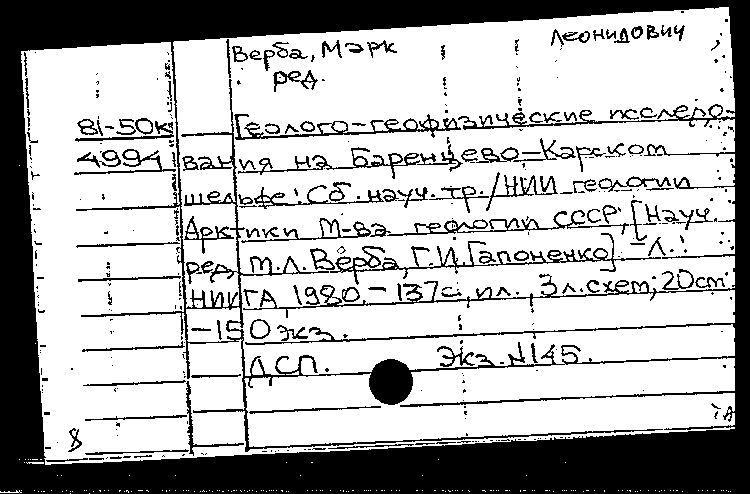 Верба, Марк Леонидович
ред.
81-50к Геолого-геофизические исследо-
4994 вания на Баренцево-Карском
шельфе: Сб. науч. тр./НИИ геологии
Арктики М-ва геологии СССР; [Науч.
ред. М.Л. Верба, Г.И. Гапоненко]. - Л.:
НИИГА, 1980. - 137с., ил., 3 л. схем; 20cm
-150 экз.
ДСП. Экз. N145.
8